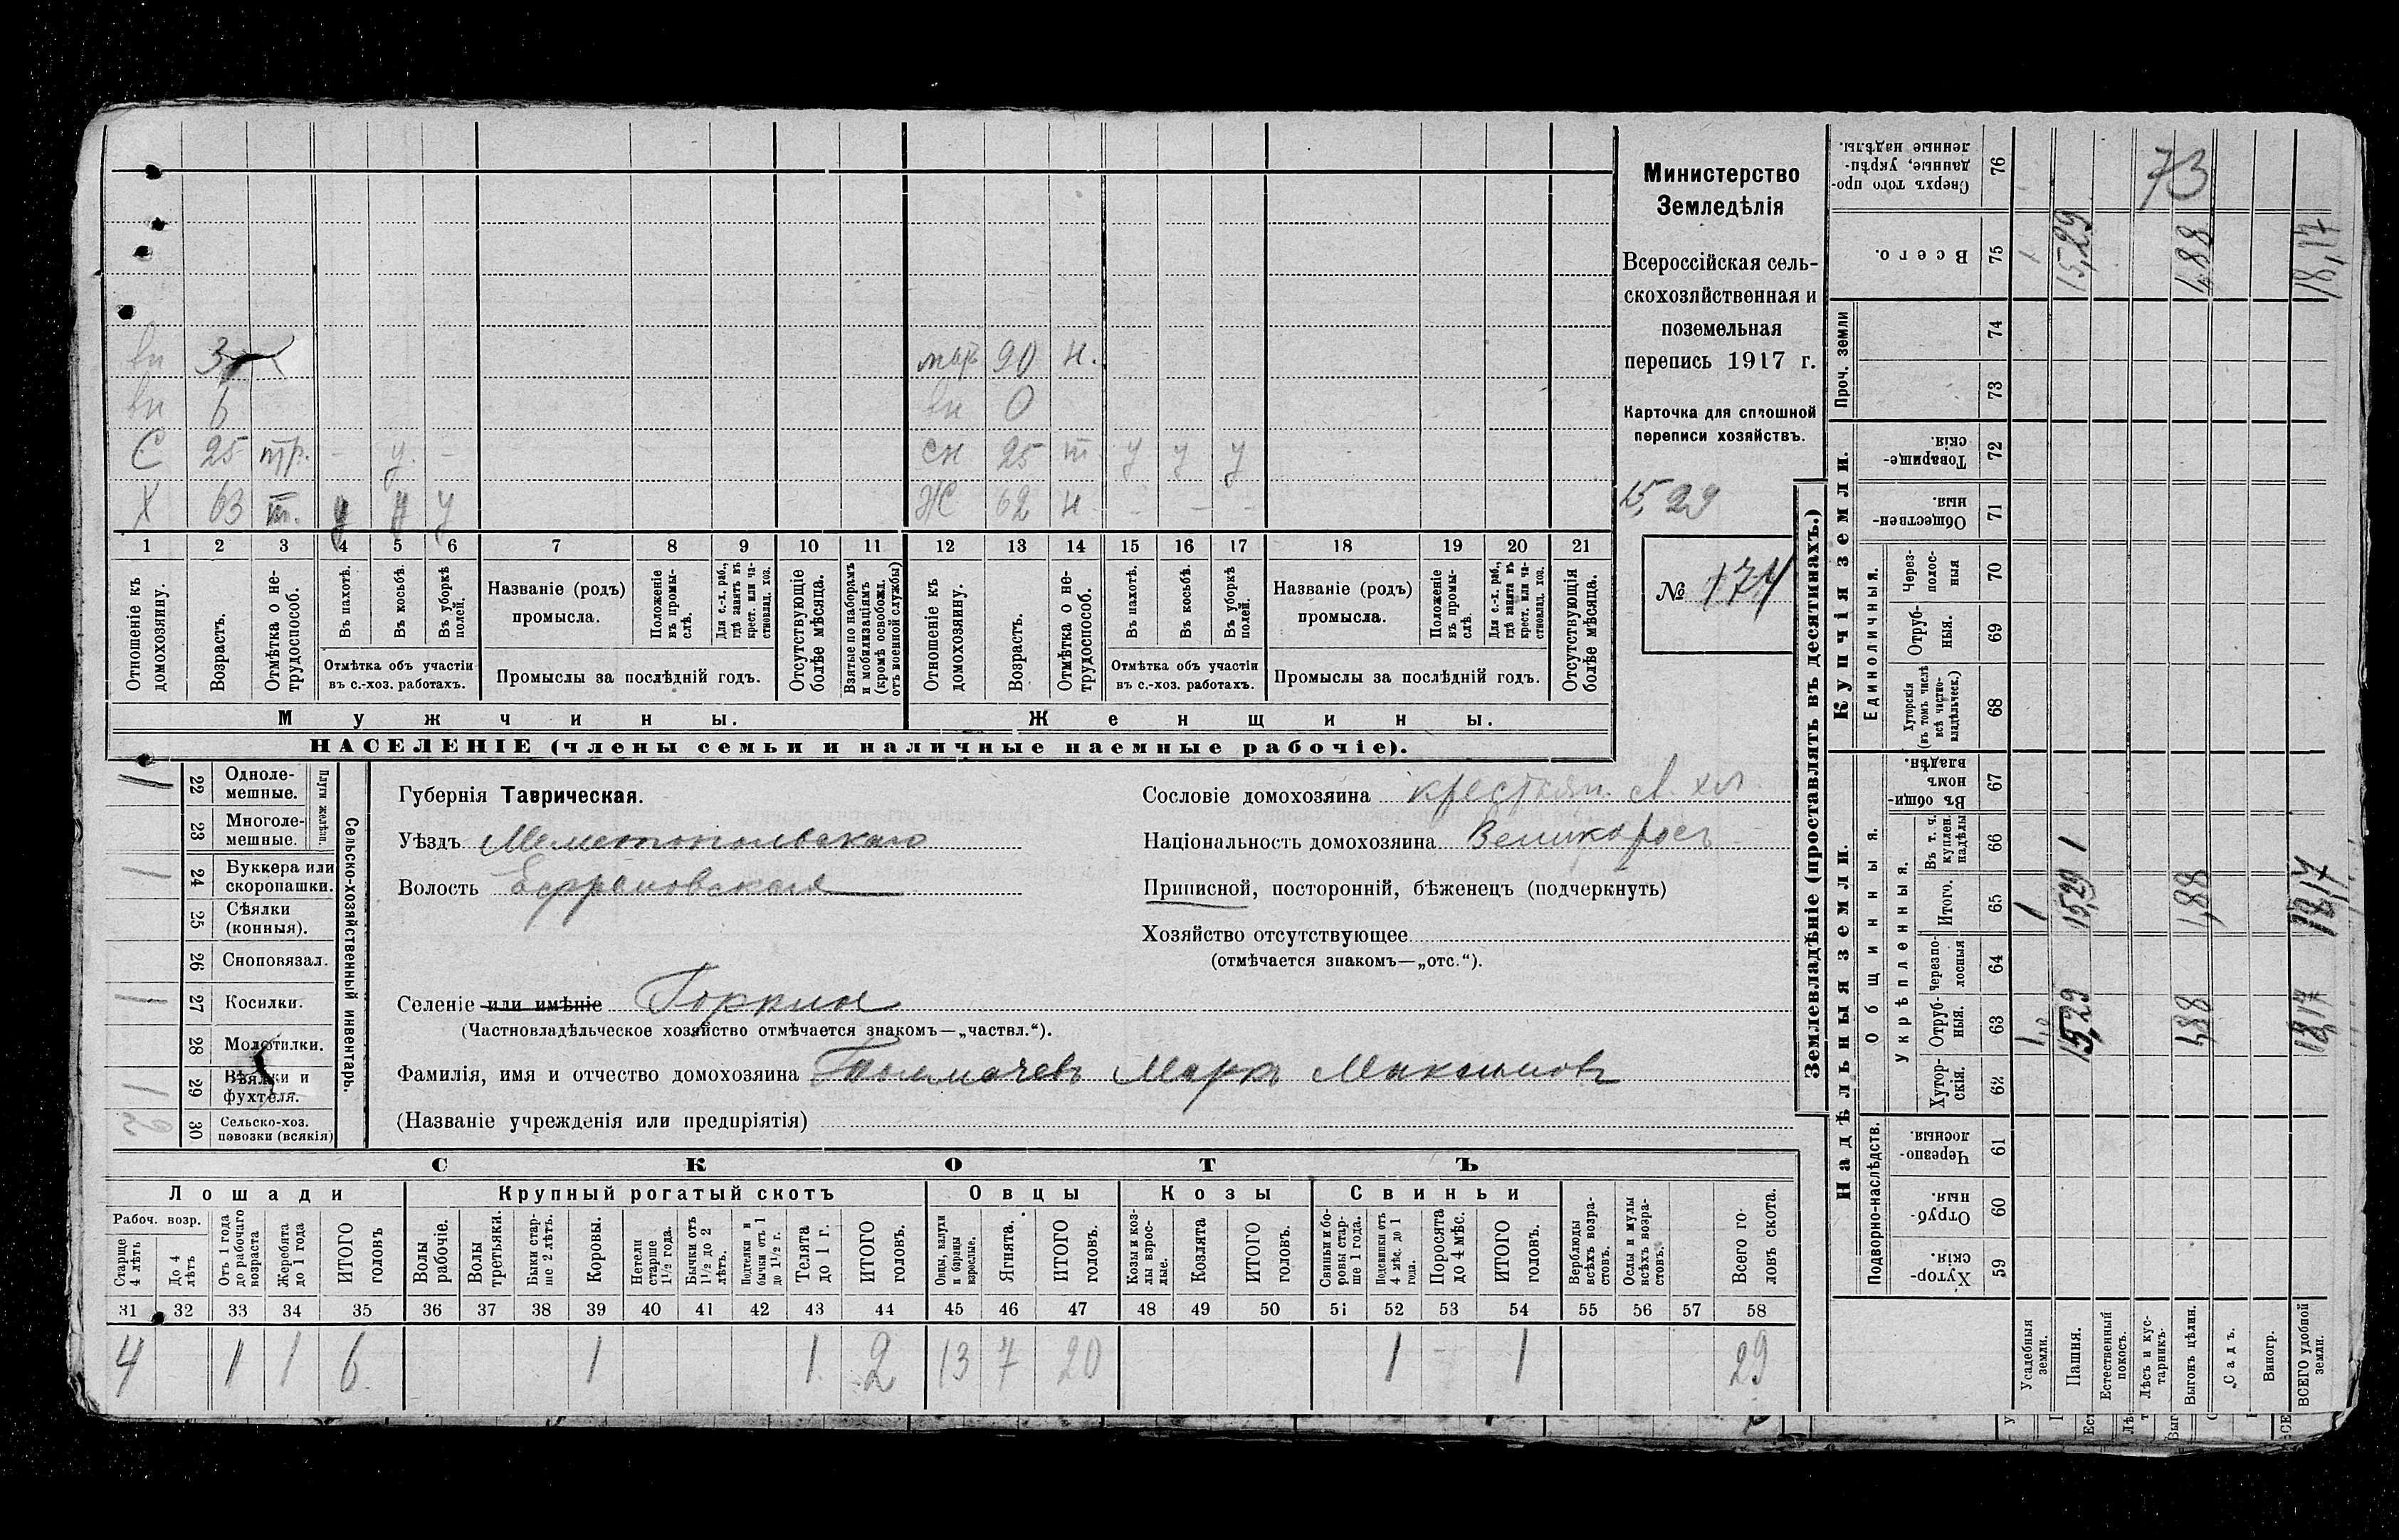 Министерство
Земледѣлія
Всероссійская сель-
скохозяйственная и
поземельная
перепись 1917 г.
Карточка для сплошной
переписи хозяйствъ.
15,29
№ 174
вн 3
мать 90 н.
вн 6
вн 0
С 25 тр. - у. -
сн 25 т у у у
Х 63 т. у у у
Ж 62 н - - -
1 2 3 4 5 6 7 8 9 10 11 12 13 14 15 16 17 18 19 20 21
Отношеніе къ домохозяину.
Возрастъ.
Отмѣтка о не-трудоспособ.
Въ пахотѣ.
Въ косьбѣ.
Въ уборкѣ полей.
Отмѣтка объ участіи въ с.-хоз. работахъ.
Названіе (родъ) промысла.
Положеніе въ промы-слѣ.
Для с.-х. раб., гдѣ занятъ въ крест. или ча-стновлад. хоз.
Промыслы за послѣдній годъ.
Отсутствующіе болѣе мѣсяца.
Взятые по наборамъ и мобилизаціямъ (кромѣ освобожд. отъ военной службы)
Отношеніе къ домохозяину.
Возрастъ.
Отмѣтка о не-трудоспособ.
Въ пахотѣ.
Въ косьбѣ.
Въ уборкѣ полей.
Отмѣтка объ участіи въ с.-хоз. работахъ.
Названіе (родъ) промысла.
Положеніе въ промы-слѣ.
Для с.-х. раб., гдѣ занята въ крест. или ча-стновлад. хоз.
Промыслы за послѣдній годъ.
Отсутствующія болѣе мѣсяца.
Мужчины.
Женщины.
НАСЕЛЕНІЕ (члены семьи и наличные наемные рабочіе).
Сельско-хозяйственный инвентарь.
Плуги желѣзн.
1 22 Одноле-мешные.
23 Многоле-мешные.
1 24 Буккера или скоропашки.
25 Сѣялки (конныя).
26 Сноповязал.
1 27 Косилки.
28 Молотилки.
1 29 Вѣялки и фухтеля.
2 30 Сельско-хоз. повозки (всякія)
Губернія Таврическая.
Уѣздъ Мелитопольскаго
Волость Ефремовская
Сословіе домохозяина крестьян.
Національность домохозяина Великоросъ
Приписной, посторонній, бѣженецъ (подчеркнуть)
Хозяйство отсутствующее
(отмѣчается знакомъ—„отс.“).
Селеніе или имѣніе
(Частновладѣльческое хозяйство отмѣчается знакомъ—„частвл.“).
Фамилія, имя и отчество домохозяина Толмачевъ Маркъ Максимовъ
(Названіе учрежденія или предпріятія)
СКОТЪ
Лошади
Крупный рогатый скотъ
Овцы
Козы
Свиньи
Рабоч. возр.
Старше 4 лѣтъ
До 4 лѣтъ
Отъ 1 года до рабочаго возраста
Жеребята до 1 года
ИТОГО головъ
Волы рабочіе.
Волы третьяки.
Быки стар-ше 2 лѣтъ.
Коровы.
Нетели старше 1½ года.
Бычки отъ 1½ до 2 лѣтъ.
Подтелки и бычки отъ 1 до 1½ г.
Телята до 1 г.
ИТОГО головъ.
Овцы, валухи и бараны взрослые.
Ягнята.
ИТОГО головъ.
Козы и коз-лы взрос-лые.
Козлята
ИТОГО головъ.
Свиньи и бо-ровы стар-ше 1 года.
Подсвинки отъ 4 мѣс. до 1 года.
Поросята до 4 мѣс.
ИТОГО головъ.
Верблюды всѣхъ возра-стовъ.
Ослы и мулы всѣхъ возра-стовъ.
Всего го-ловъ скота.
31 32 33 34 35 36 37 38 39 40 41 42 43 44 45 46 47 48 49 50 51 52 53 54 55 56 57 58
4 1 1 6 1 1 2 13 7 20 1 - 1 29
Землевладѣніе (проставлять въ десятинахъ.)
Надѣльныя земли.
Купчія земли.
Проч. земли
Подворно-наслѣдств.
Общинныя.
Укрѣпленныя.
Единоличныя.
Сверхъ того про-данные, укрѣп-ленные надѣлы. 76
73
Всего. 75 15,29 1,88 18,17
74
73
Товарище-скія. 72
Обществен-ныя. 71
Через-полос-ныя 70
Отруб-ныя. 69
Хуторскія (въ томъ числѣ всѣ частно-владѣльческ.) 68
Въ общин-номъ владѣн. 67
Въ т. ч. куплен. надѣлы 66 1
Итого. 65 1 15,29 1,88 18,17
Черезпо-лосныя 64
Отруб-ныя. 63 15,29 1,88 18,17
Хутор-скія. 62
Черезпо-лосныя. 61
Отруб-ныя 60
Хутор-скія. 59
Усадебныя земли.
Пашня.
Естественный покосъ.
Лѣсъ и кус-тарникъ.
Выгонъ цѣлин.
Садъ.
Виногр.
ВСЕГО удобной земли.